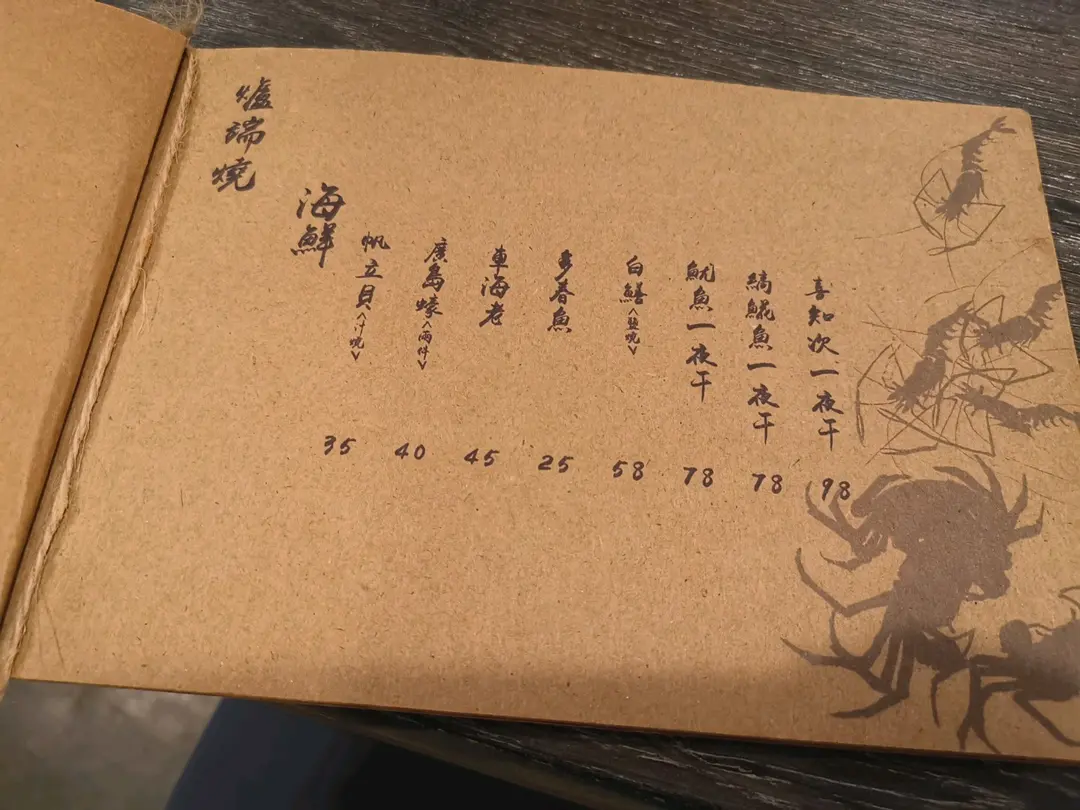 爐端燒
海鮮
帆立貝<汁焼> 35
廣島蠔<兩件> 40
車海老 45
多春魚 25
白鱔<塩焼> 58
魷魚一夜干 78
縞𩸽魚一夜干 78
喜知次一夜干 98